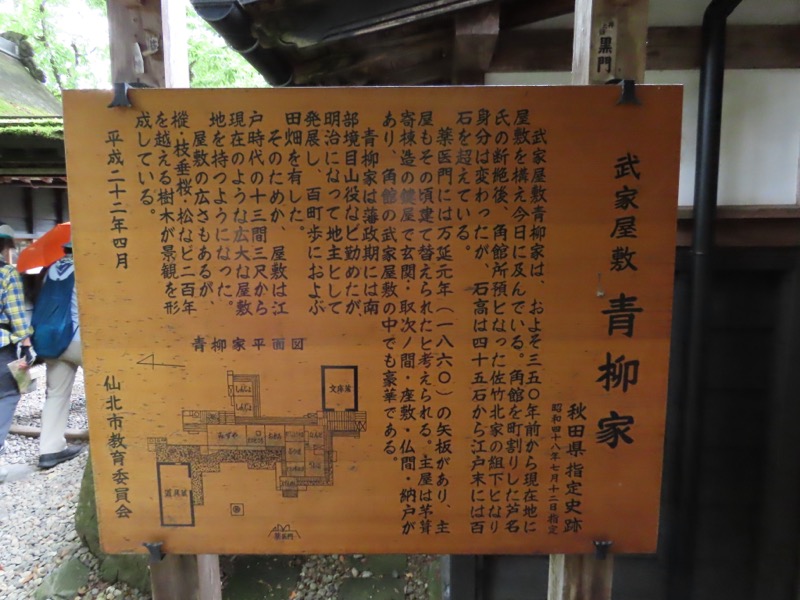 武家屋敷 青柳家
秋田県指定史跡
昭和四十八年七月十二日指定
武家屋敷青柳家は、およそ三五〇年前から現在地に
屋敷を構え今日に及んでいる。角館を町割りした芦名
氏の断絶後、角館所預となった佐竹北家の組下となり
身分は変わったが、石高は四十五石から江戸末には百
石を超えている。
薬医門には万延元年（一八六〇）の矢板があり、主
屋もその頃建て替えられたと考えられる。主屋は茅葺
寄棟造の鍵屋で玄関・取次ノ間・座敷・仏間・納戸が
あり、角館の武家屋敷の中でも豪華である。
青柳家は藩政期には南
部境目山役など勤めたが、
明治になって地主として
発展し、百町歩におよぶ
田畑を有した。
そのためか、屋敷は江
戸時代の十三間三尺から
現在のような広大な屋敷
地を持つようになった。
屋敷の広さもあるが、
樅・枝垂桜・松など二百年
を越える樹木が景観を形
成している。
平成二十二年四月
仙北市教育委員会
青柳家平面図
文庫蔵
みずや
薬医門
黒門